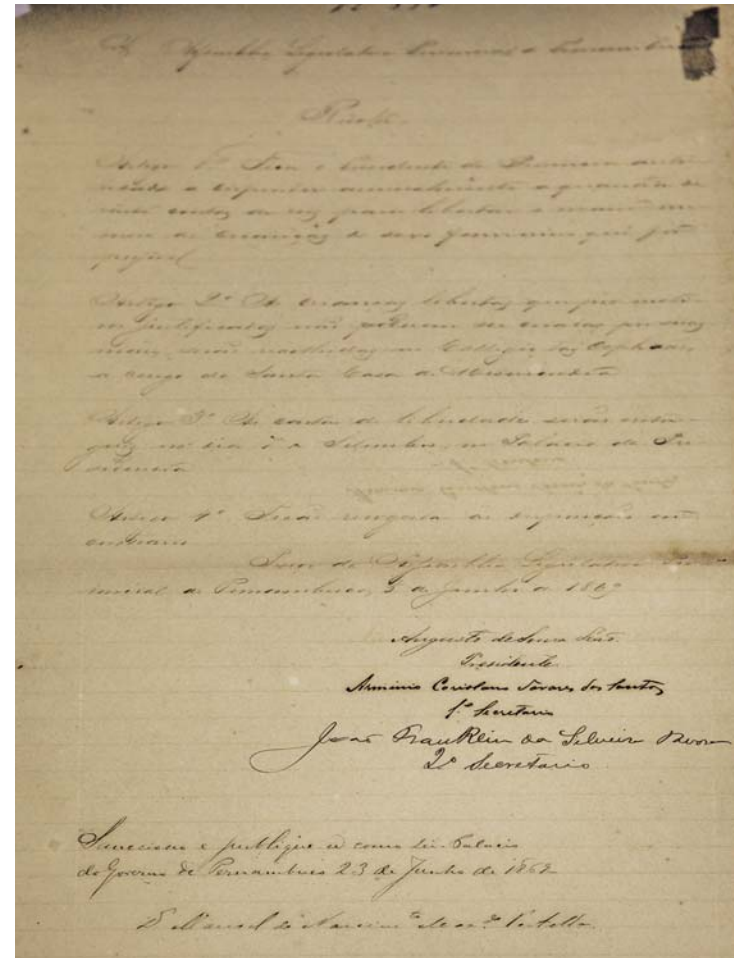 A Assembléa Legislativa Provincial de Pernambuco
Resolve:
Artigo 1º Fica o Presidente da Provincia auto-
risado a dispender annualmente a quantia de
contos de reis para libertar o maior nu-
mero de creanças do sexo feminino que fôr
possivel.
Artigo 2º As creanças libertas, que por moti-
vos justificados não poderem ser criadas por suas
mães, serão recolhidas ao Collegio das Orphãas,
a cargo da Santa Casa de Misericordia.
Artigo 3º As cartas de liberdade serão entre-
gues no dia de Setembro, no Palacio da Pre-
sidencia.
Artigo 4º Ficão revogadas as disposições em
contrario.
Paço da Assembléa Legislativa Pro-
vincial de Pernambuco, de Junho de 1869
Augusto de Souza Leão.
Presidente.
Arminio Coriolano Tavares dos Santos
1º Secretario
João Franklin da Silveira Tavora
2º Secretario.
Sancciono e publique-se como Lei. Palacio
do Governo de Pernambuco 23 de Junho de 1869
Manoel do Nascimtº Machdº Portella.